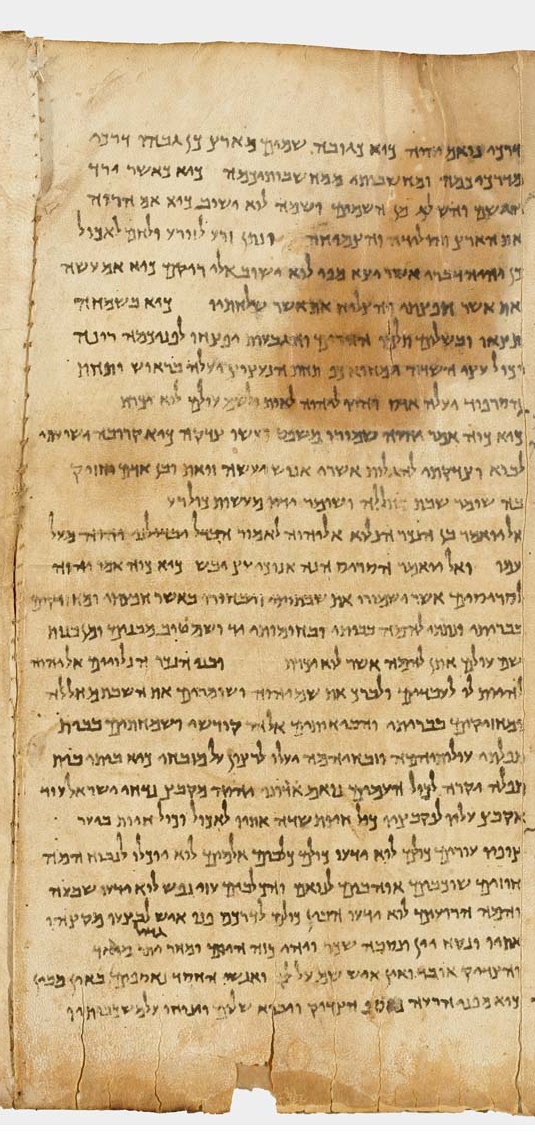 דרכי נואם יהוה כיא כגובה שמים מארץ כן גבהו דרכי
מדרכיכמה ומחשבותי ממחשבותיכמה כיא כאשר ירד
הגשם והשלג מן השמים ושמה לוא ישוב כיא אם הרוה
את הארץ והולידה והצמיחה ונתן זרע לזורע ולחם לאכול
כן יהיה דברי אשר יצא מפי לוא ישוב אלי ריקם כיא אם עשה
את אשר חפצתי והצליח את אשר שלחתיו כיא בשמחה
תצאו ובשלום תלכו ההרים והגבעות יפצחו לפניכמה רונה
וכול עצי השדה ימחאו כף תחת הנעצוץ יעלה ברוש ותחת
הסרפוד יעלה והיו ליהוה לאות ולשם עולם לוא יכרת
כיא כוה אמר יהוה שמורו משפט ועשו צדקה כיא קרובה ישועתי
לבוא וצדקתי להגלות אשרי אנוש יעשה זואת ובן אדם יחזיק
בה שומר שבת מחללה ושומר ידיו מעשות כול רע
אל יואמר בן הנכר הנלוא אל יהוה לאמור הבדל יבדילני יהוה מעל
עמו ואל יואמר הסריס הנה אנוכי עץ יבש כיא כוה אמר יהוה
לסריסים אשר ישמורו את שבתותי ויבחורו באשר חפצתי ומחזיקים
בבריתי ונתתי להמה בביתי ובחומותי יד ושם טוב מבנים ומבנות
שם עולם אתן להמה אשר לוא יכרת ובני הנכר הנלויים אל יהוה
להיות לו לעבדים ולברך את שם יהוה ושומרים את השבת מחללה
ומחזיקים בבריתי והביאותים אל הר קודשי ושמחתים בבית
תפלתי עולותיהמה וזבחיהמה יעלו לרצון על מזבחי כיא ביתי בית
תפלה יקרה לכול העמים נואם אדוני יהוה מקבץ נדחי ישראל עוד
אקבץ עליו לנקבציו כול חיות שדה אתיו לאכול וכול חיות ביער
צופיו עורים כולם לוא ידעו כולם כלבים אלמים לוא יוכלו לנבוח המה
חוזים שוכבים אוהבים לנואם והכלבים עזי נפש לוא ידעו שבעה
והמה הרועים לוא ידעו הבין כולם לדרכם פנו איש לבצעו מקצהו
אתיו ונקח יין ונסבה שכר ויהי כזה היום ומחר יתר מואדה
והצדיק אובד ואין איש שם על לב ואנשי חסד נאספים באין מבין
כיא מפני הרעה נאסף הצדיק ויבוא שלום וינוחו על משכבותיו